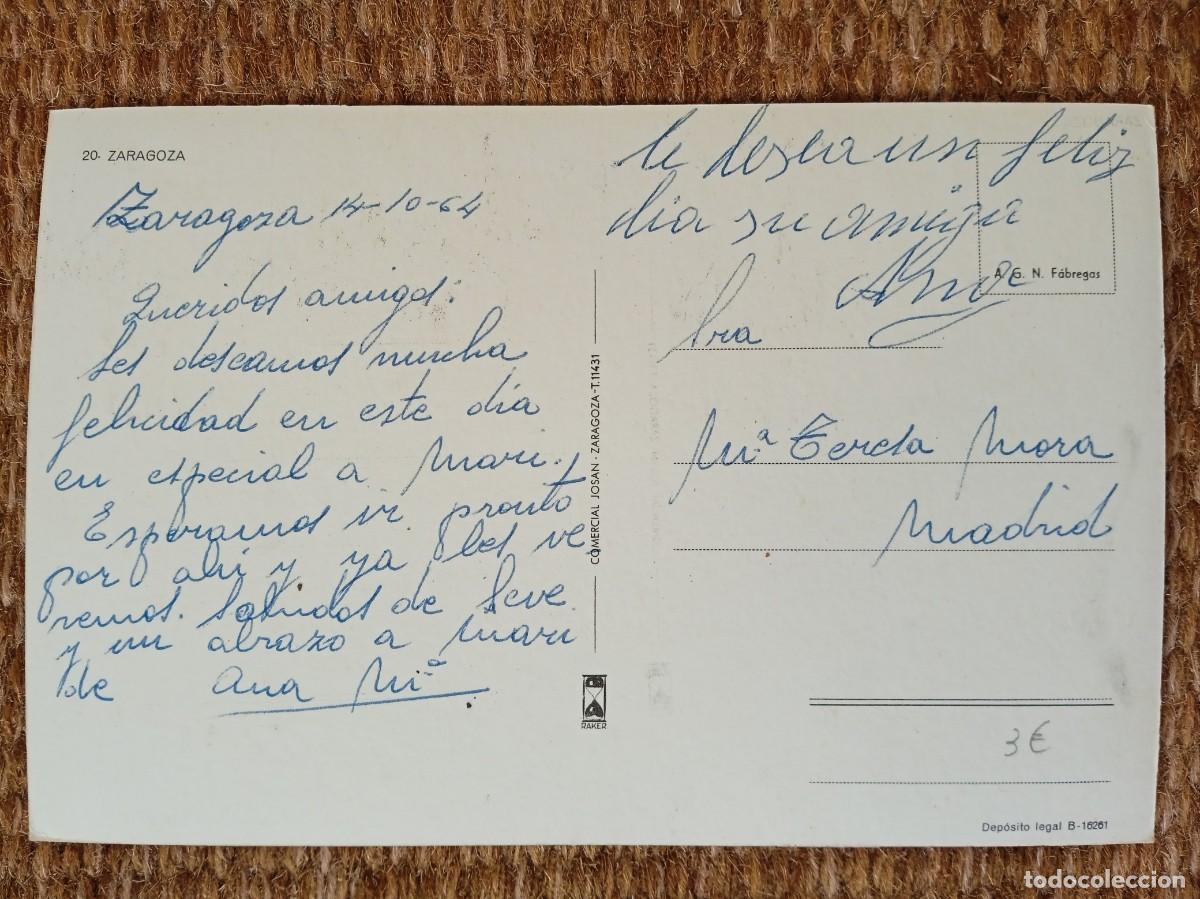 20- ZARAGOZA
Zaragoza 14-10-64
Queridos amigos:
Les deseamos mucha
felicidad en este dia
en especial a Mari.
Esperamos ir pronto
por ahi y ya les ve
remos. Saludos de Seve
y un abrazo a Mari
de Ana Mª
le desea un feliz
dia su amiga
Ana
A. G. N. Fábregas
Sra
Mª Teresa Mora
Madrid
COMERCIAL JOSAN - ZARAGOZA - T. 11431
RAKER
3€
Depósito legal B-16261
todocoleccion